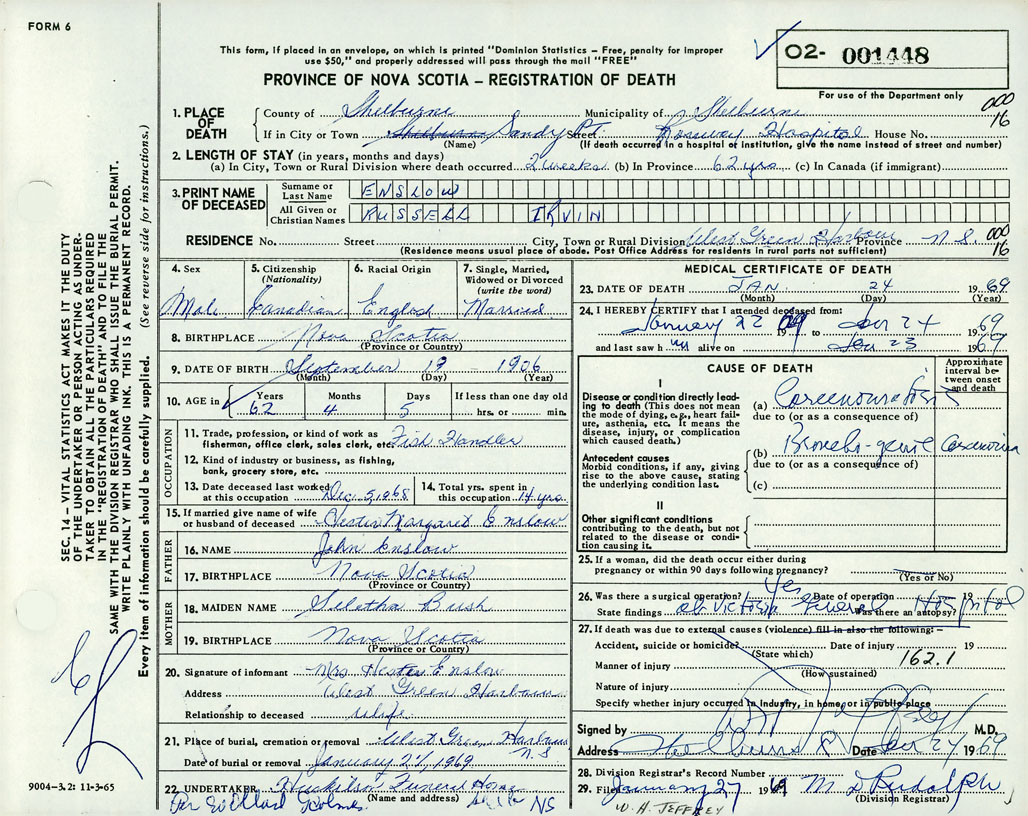 FORM 6
This form, if placed in an envelope, on which is printed "Dominion Statistics – Free, penalty for improper
use $50," and properly addressed will pass through the mail "FREE"
PROVINCE OF NOVA SCOTIA – REGISTRATION OF DEATH
02- 001448
For use of the Department only
000
16
SEC. 14 – VITAL STATISTICS ACT MAKES IT THE DUTY
OF THE UNDERTAKER OR PERSON ACTING AS UNDER-
TAKER TO OBTAIN ALL THE PARTICULARS REQUIRED
IN THE "REGISTRATION OF DEATH" AND TO FILE THE
SAME WITH THE DIVISION REGISTRAR WHO SHALL ISSUE THE BURIAL PERMIT.
WRITE PLAINLY WITH UNFADING INK. THIS IS A PERMANENT RECORD.
Every item of information should be carefully supplied. (See reverse side for instructions.)
1. PLACE OF DEATH
County of Shelburne Municipality of Shelburne
If in City or Town Shelburne Sandy Pt. Street Roseway Hospital House No.
(Name) (If death occurred in a hospital or institution, give the name instead of street and number)
2. LENGTH OF STAY (in years, months and days)
(a) In City, Town or Rural Division where death occurred 2 weeks (b) In Province 62 yrs (c) In Canada (if immigrant)
3. PRINT NAME OF DECEASED
Surname or Last Name ENSLOW
All Given or Christian Names RUSSELL IRVIN
RESIDENCE No. Street City, Town or Rural Division West Green Harbour Province N.S. 000
16
(Residence means usual place of abode. Post Office Address for residents in rural parts not sufficient)
4. Sex Male
5. Citizenship (Nationality) Canadian
6. Racial Origin English
7. Single, Married, Widowed or Divorced (write the word) Married
8. BIRTHPLACE Nova Scotia
(Province or Country)
9. DATE OF BIRTH September 19 1906
(Month) (Day) (Year)
10. AGE in Years 62 Months 4 Days 5 If less than one day old hrs. or min.
OCCUPATION
11. Trade, profession, or kind of work as
fisherman, office clerk, sales clerk, etc. Fish Handler
12. Kind of industry or business, as fishing,
bank, grocery store, etc.
13. Date deceased last worked
at this occupation Dec. 5, 1968
14. Total yrs. spent in
this occupation 14 yrs
15. If married give name of wife
or husband of deceased Hester Margaret Enslow
FATHER
16. NAME John Enslow
17. BIRTHPLACE Nova Scotia
(Province or Country)
MOTHER
18. MAIDEN NAME Seletha Bush
19. BIRTHPLACE Nova Scotia
(Province or Country)
20. Signature of informant Mrs Hester Enslow
Address West Green Harbour
Relationship to deceased wife
21. Place of burial, cremation or removal West Green Harbour N.S
Date of burial or removal January 27, 1969
22. UNDERTAKER Funeral Home
(Name and address) NS
per Willard Holmes
9004-3.2: 11-3-65
MEDICAL CERTIFICATE OF DEATH
23. DATE OF DEATH JAN. 24 1969
(Month) (Day) (Year)
24. I HEREBY CERTIFY that I attended deceased from:
January 22 1969 to Jan 24 1969
and last saw him alive on Jan 23 1969
CAUSE OF DEATH
Approximate interval between onset and death
I
Disease or condition directly lead-
ing to death (This does not mean
the mode of dying, e.g., heart failure,
asthenia, etc. It means the
disease, injury, or complication
which caused death.)
(a) Carcinomatosis
due to (or as a consequence of)
Antecedent causes
Morbid conditions, if any, giving
rise to the above cause, stating
the underlying condition last.
(b) Broncho-genic Carcinoma
due to (or as a consequence of)
(c)
II
Other significant conditions
contributing to the death, but not
related to the disease or condi-
tion causing it.
25. If a woman, did the death occur either during
pregnancy or within 90 days following pregnancy?
(Yes or No)
26. Was there a surgical operation? Yes Date of operation 19
State findings at Victoria General Hospital Was there an autopsy?
27. If death was due to external causes (violence) fill in also the following: –
Accident, suicide or homicide? Date of injury 19
(State which)
162.1
Manner of injury
(How sustained)
Nature of injury
Specify whether injury occurred in industry, in home, or in public place
Signed by M.D.
Address Shelburne Date Jan 24 1969
28. Division Registrar's Record Number
29. Filed January 27 1969 M D Rudolph
(Division Registrar)
W. A. JEFFREY